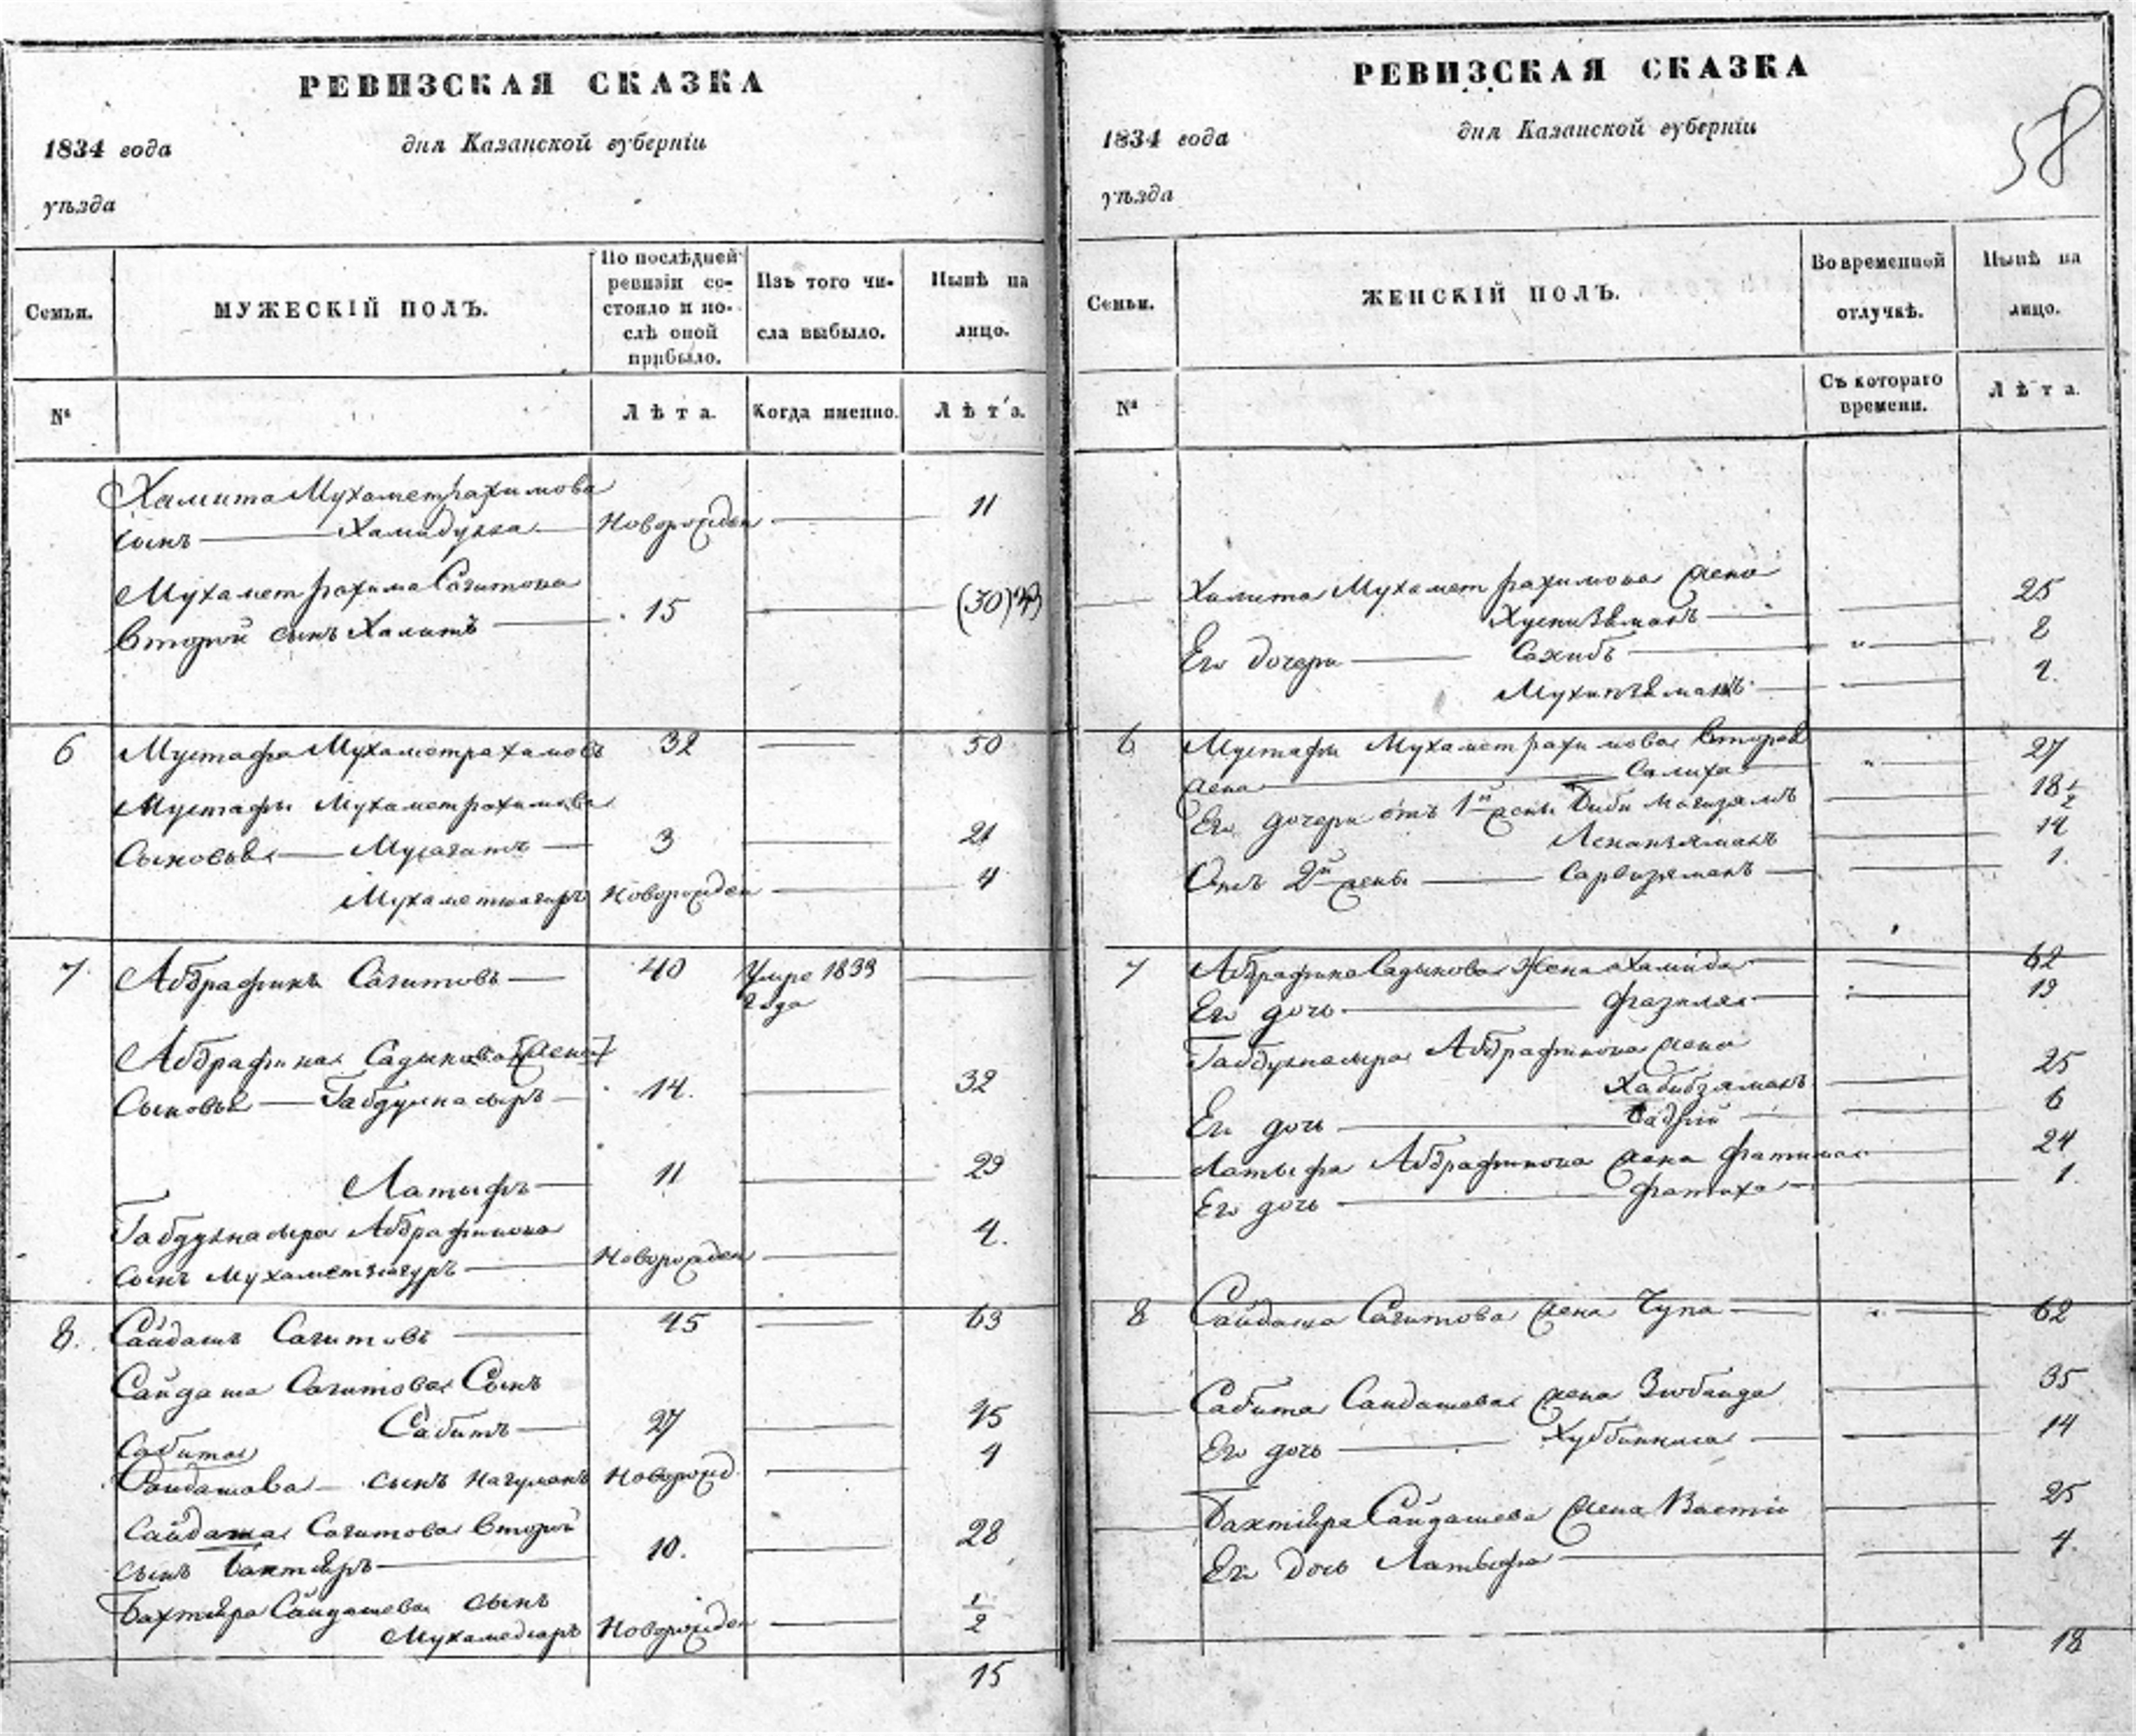 РЕВИЗСКАЯ СКАЗКА
1834 года
дня Казанской губерніи
уѣзда
Семьи.
МУЖЕСКІЙ ПОЛЪ.
По послѣдней ревизіи состояло и послѣ оной прибыло.
Изъ того числа выбыло.
Нынѣ на лицо.
№
Лѣта.
Когда именно.
Лѣта.
Халита Мухаметрахимова
сынъ Хамидулла Новорожден 11
Мухаметрахима Сагитова
второй сынъ Халитъ 15 (30)
6 Мустафа Мухаметрахимовъ 32 50
Мустафы Мухаметрахимова
Сыновья 3 21
Новорожден 4
7 Абдрафикъ Сагитовъ 40 Умре 1833
года
Абдрафика Садыкова
Сыновья Габдулнасыръ 14. 32
Латыфъ 11 29
Габдулнасыра Абдрафикова 4.
сынъ Новорожден
8. Сайдашъ Сагитовъ 45 63
Сайдаша Сагитова Сынъ
Сабитъ 27 45
Сабита 4
Сайдашева сынъ Нагуманъ Новорожд.
Сайдаша Сагитова второй 28
сынъ Бактіяръ 10.
Бахтіяра Сайдашева сынъ 1/2
Мухамедіаръ Новорожден
15
РЕВИЗСКАЯ СКАЗКА
58
1834 года
дня Казанской губерніи
уѣзда
Семьи.
ЖЕНСКІЙ ПОЛЪ.
Во временной отлучкѣ.
Нынѣ на лицо.
№
Съ котораго времени.
Лѣта.
Халита Мухаметрахимова жена 25
Его дочери Сахибъ
6 Мустафы Мухаметрахимова вторая 27
жена Салиха
Его дочери отъ 1й жены Биби 18 1/2
14
Отъ 2й жены 1.
7 Абдрафика Садыкова жена Хамида 62
Его дочь Фазиля 19
Габдулнасыра Абдрафикова жена
Хабибзяманъ 25
Его дочь 6
Латыфа Абдрафикова жена Фатима 24
Его дочь Фатиха 1.
8 Сайдаша Сагитова жена Чупа 62
Сабита Сайдашева жена Зюбаида 35
Его дочь Хуббинниса 14
Бахтіяра Сайдашева жена 25
Его дочь Латыфа 4.
18